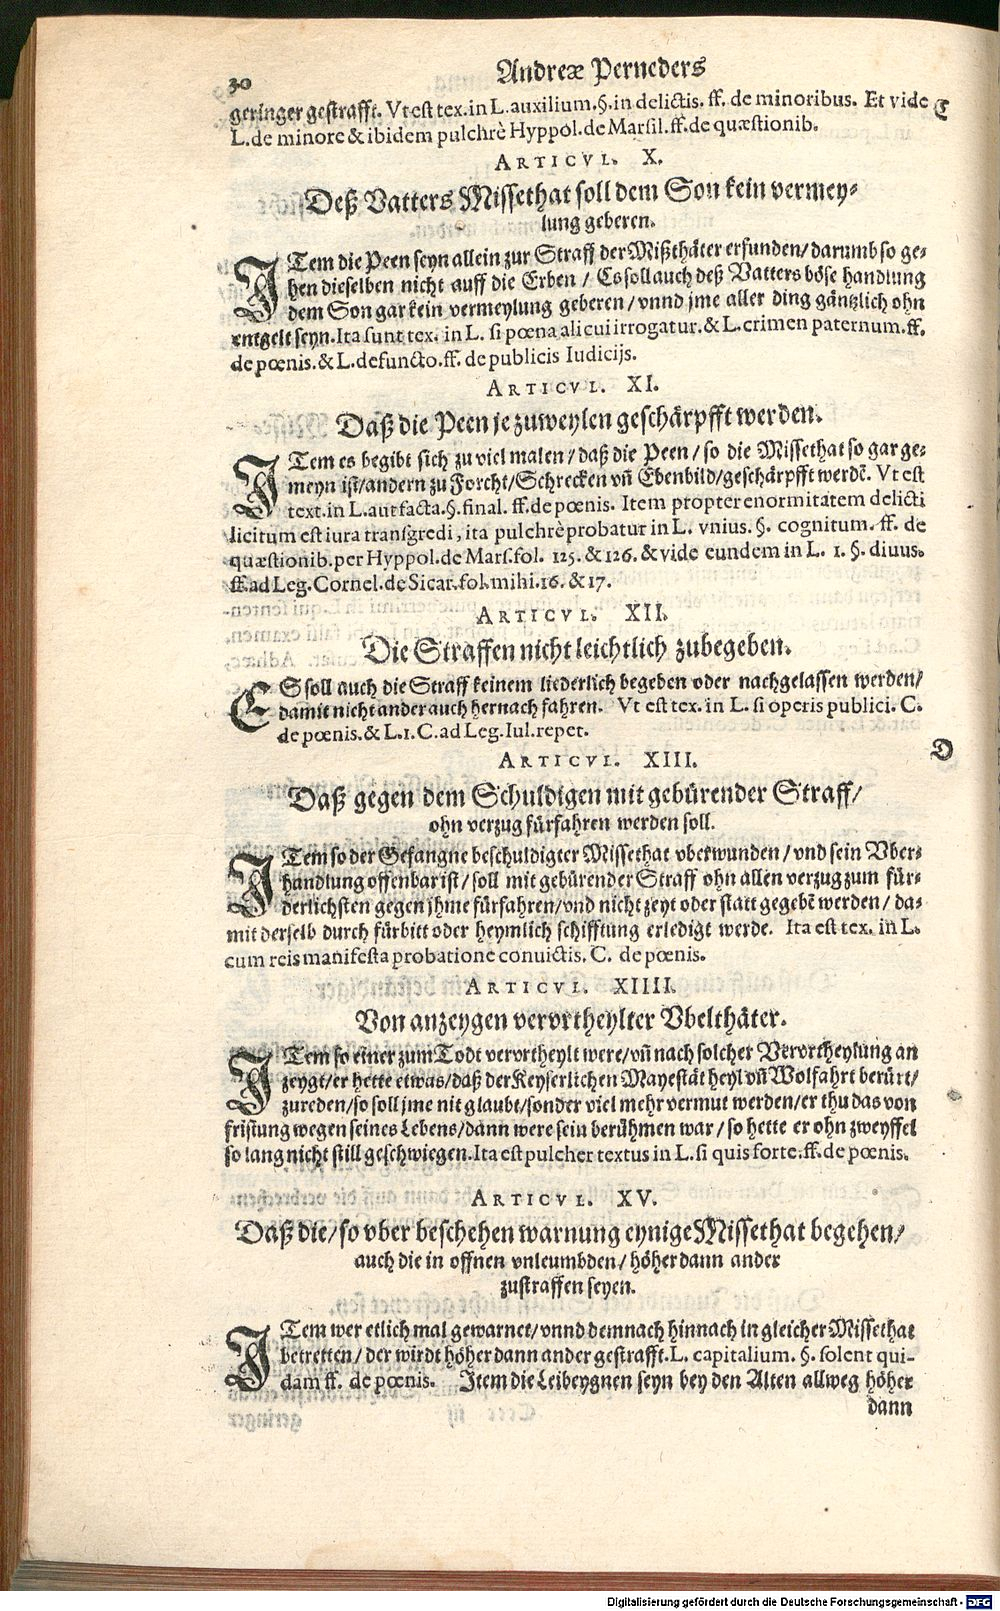 30
Andreæ Perneders
geringer gestrafft. Vt est tex. in L. auxilium. §. in delictis. ff. de minoribus. Et vide
C
L. de minore & ibidem pulchrè Hyppol. de Marsil. ff. de quæstionib.
ARTICVL. X.
Deß Vatters Missethat soll dem Son kein vermey-
lung geberen.
ITem die Peen seyn allein zur Straff der Mißthäter erfunden/ darumb so ge-
hen dieselben nicht auff die Erben / Es soll auch deß Vatters böse handlung
dem Son gar kein vermeylung geberen / vnnd jme aller ding gäntzlich ohn
entgelt seyn. Ita sunt tex. in L. si pœna alicui irrogatur. & L. crimen paternum. ff.
de pœnis. & L. defuncto. ff. de publicis Iudicijs.
ARTICVL. XI.
Daß die Peen je zuweylen geschärpfft werden.
ITem es begibt sich zu viel malen / daß die Peen / so die Missethat so gar ge-
meyn ist/ andern zu Forcht/ Schrecken vñ Ebenbild/ geschärpfft werdē. Vt est
text. in L. aut facta. §. final. ff. de pœnis. Item propter enormitatem delicti
licitum est iura transgredi, ita pulchrè probatur in L. vnius. §. cognitum. ff. de
quæstionib. per Hyppol. de Mars. fol. 125. & 126. & vide eundem in L. 1. §. diuus.
ff. ad Leg. Cornel. de Sicar. fol. mihi. 16. & 17.
ARTICVL. XII.
Die Straffen nicht leichtlich zubegeben.
ES soll auch die Straff keinem liederlich begeben oder nachgelassen werden/
damit nicht ander auch hernach fahren. Vt est tex. in L. si operis publici. C.
de pœnis. & L. 1. C. ad Leg. Iul. repet.
ARTICVL. XIII.
D
Daß gegen dem Schuldigen mit gebürender Straff/
ohn verzug fürfahren werden soll.
ITem so der Gefangne beschuldigter Missethat vberwunden / vnd sein Vber-
handlung offenbar ist / soll mit gebürender Straff ohn allen verzug zum für-
derlichsten gegen jhme fürfahren/ vnd nicht zeyt oder statt gegebē werden / da-
mit derselb durch fürbitt oder heymlich schifftung erledigt werde. Ita est tex. in L.
cum reis manifesta probatione conuictis. C. de pœnis.
ARTICVL. XIIII.
Von anzeygen verurtheylter Vbelthäter.
ITem so einer zum Todt vervrtheylt were/ vñ nach solcher Vervrtheylung an
zeygt/ er hette etwas/ daß der Keyserlichen Mayestät heyl vñ Wolfahrt berürt/
zureden/ so soll jme nit glaubt/ sonder viel mehr vermut werden/ er thu das von
fristung wegen seines Lebens/ dann were sein berühmen war / so hette er ohn zweyffel
so lang nicht still geschwiegen. Ita est pulcher textus in L. si quis forte. ff. de pœnis.
ARTICVL. XV.
Daß die/ so vber beschehen warnung eynige Missethat begehen/
auch die in offnen vnleumbden / höher dann ander
zustraffen seyen.
ITem wer etlich mal gewarnet/ vnnd demnach hinnach in gleicher Missethat
betretten / der wirdt höher dann ander gestrafft. L. capitalium. §. solent qui-
dam ff. de pœnis. Item die Leibeygnen seyn bey den Alten allweg höher
dann
Digitalisierung gefördert durch die Deutsche Forschungsgemeinschaft - DFG